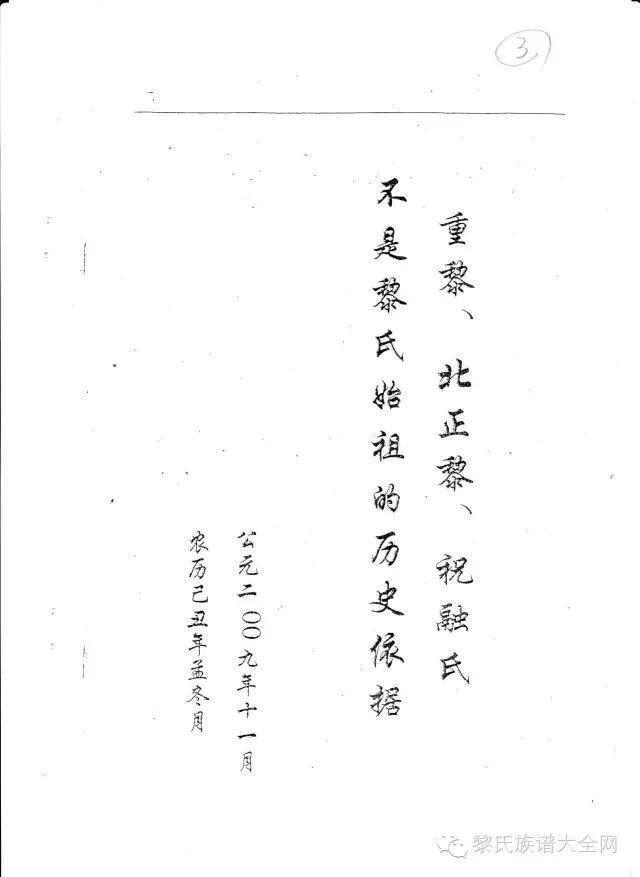 3
重黎、北正黎、祝融氏
不是黎氏始祖的历史依据
公元二〇〇九年十一月
农历己丑年孟冬月
黎氏族谱大全网